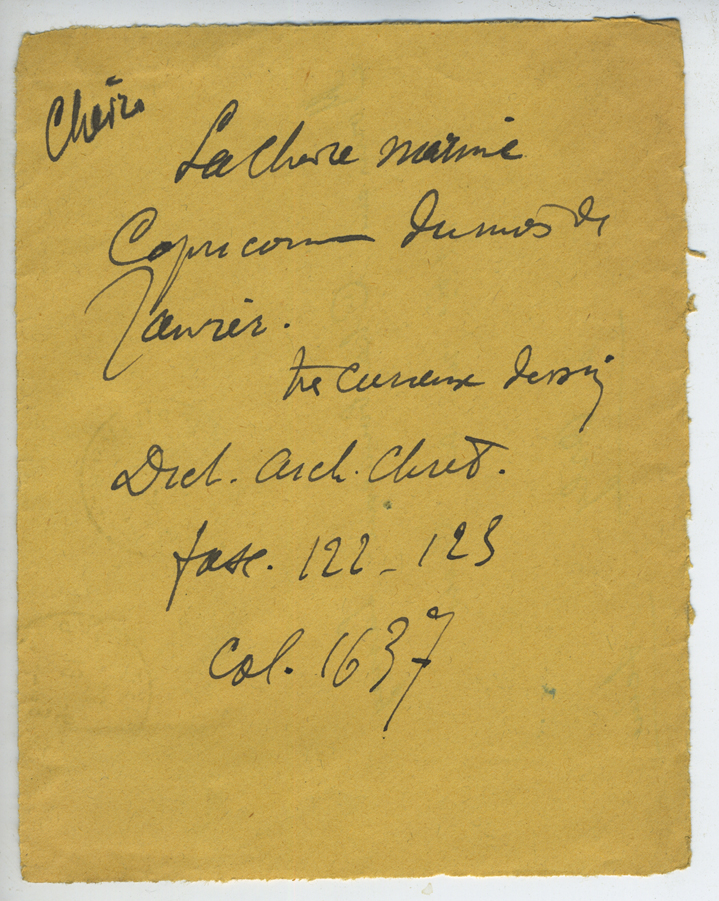 Chèvre
La Chèvre marine
Capricorne du mois de
Janvier.
très curieux dessin
Dict. arch. chret.
fasc. 122 - 123
col. 1637